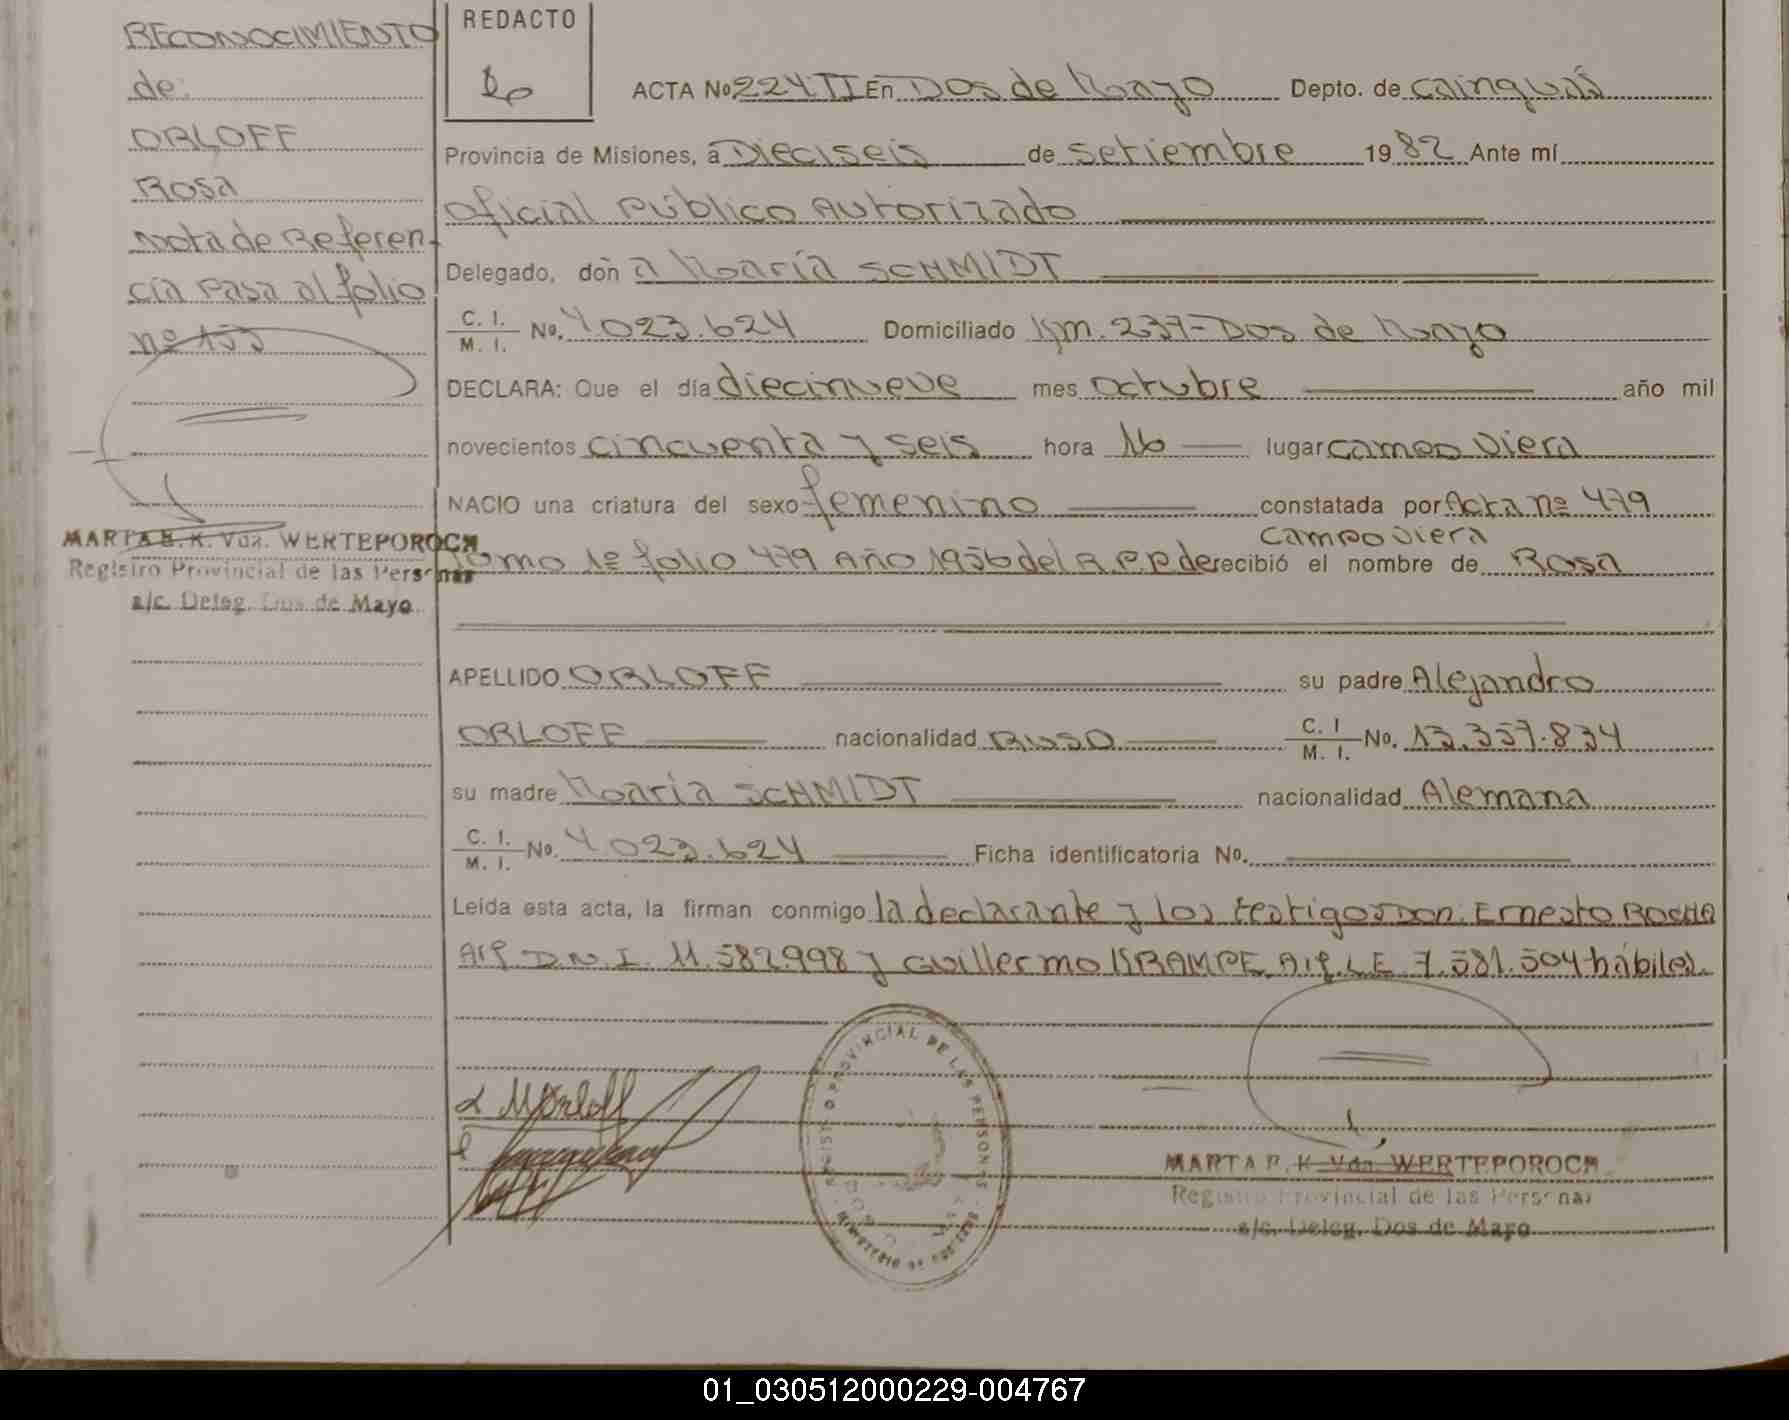 RECONOCIMIENTO
de:
ORLOFF
Rosa
Nota de Referen-
cia pasa al folio
nº 155
MARTA E. K. Vda. WERTEPOROCH
Registro Provincial de las Personas
a/c. Deleg. Dos de Mayo
REDACTO
ACTA No 224 TI En Dos de Mayo Depto. de Cainguás
Provincia de Misiones, a Dieciseis de setiembre 1982 Ante mí
Oficial Público Autorizado
Delegado, doñ a María SCHMIDT
C. I. / M. I. No. 4.023.624 Domiciliado Km. 237-Dos de Mayo
DECLARA: Que el día diecinueve mes octubre año mil
novecientos cincuenta y seis hora 16 lugar Campo Viera
NACIO una criatura del sexo femenino constatada por Acta nº 479
Campo Viera
Tomo 1º folio 479 Año 1956 del R.P.P de recibió el nombre de Rosa
APELLIDO ORLOFF su padre Alejandro
ORLOFF nacionalidad Ruso C. I / M. I. No. 13.357.834
su madre María SCHMIDT nacionalidad Alemana
C. I. / M. I. No. 4.023.624 Ficha identificatoria No.
Leída esta acta, la firman conmigo la declarante y los testigos Don: Ernesto ROCHA
Arg D.N.I. 11.582.998 y Guillermo KRAMPE Arg. L.E 7.581.504 hábiles.
MOrloff
REGISTRO PROVINCIAL DE LAS PERSONAS
MINISTERIO DE GOBIERNO
MARTA E. K. Vda. WERTEPOROCH
Registro Provincial de las Personas
a/c. Deleg. Dos de Mayo
01_030512000229-004767